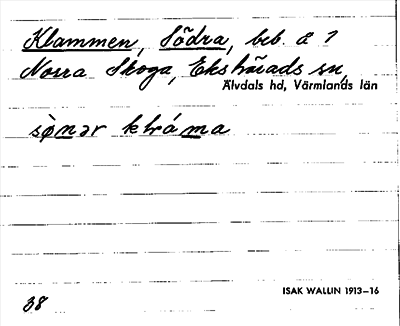 Klammen, Södra, beb. å 7
Norra Skoga, Ekshärads sn,
Älvdals hd, Värmlands län
ISAK WALLIN 1913–16
38